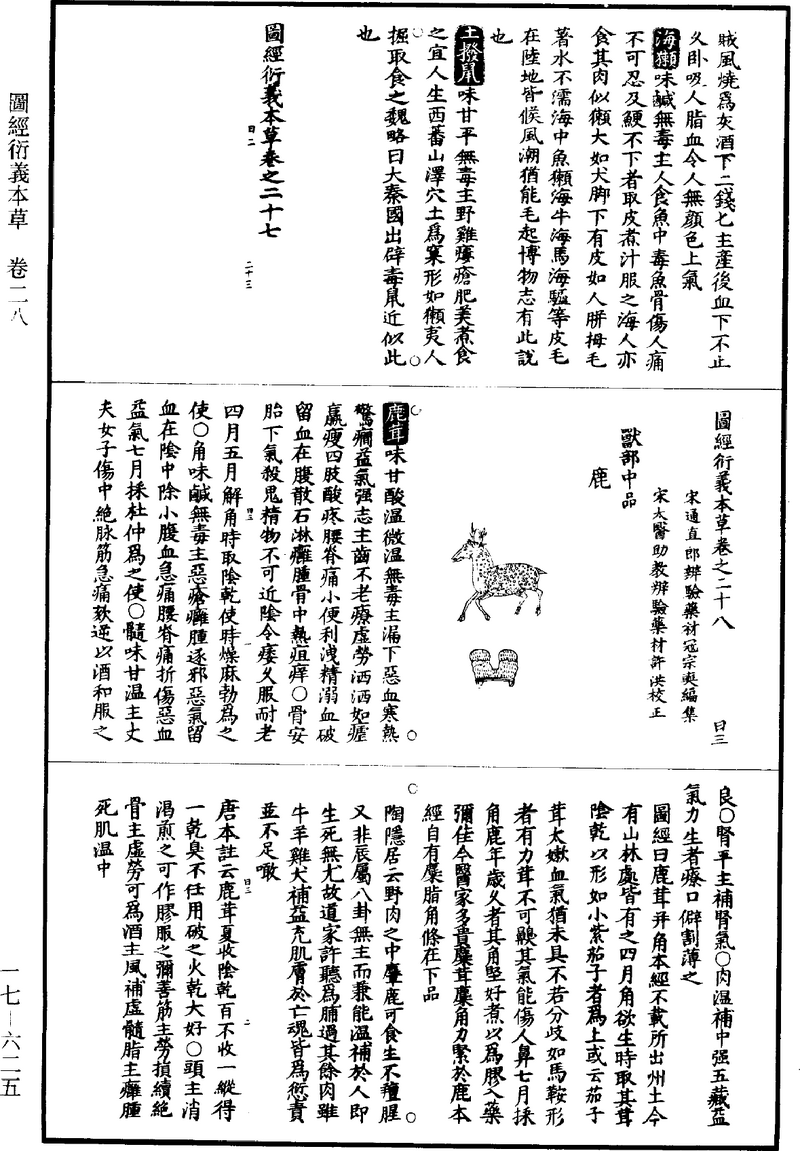 圖經衍義本草　卷二八
一七－六二五
賊風燒爲灰酒下二錢七主產後血下不止
久卧吸人脂血令人無顔色上氣
海獺味鹹無毒主人食魚中毒魚骨傷人痛
不可忍及鯁不下者取皮煮汁服之海人亦
食其肉似獺大如犬脚下有皮如人胼拇毛
著水不濡海中魚獺海牛海馬海驢等皮毛
在陸地皆候風潮猶能毛起博物志有此說
也
土撥鼠味甘平無毒主野雞瘻瘡肥美煮食
之宜人生西蕃山澤穴土爲窠形如獺夷人
掘取食之魏略曰大秦國出辟毒鼠近似此
也
圖經衍義本草卷之二十七
曰二
二十三
圖經衍義本草卷之二十八
曰三
宋通直郎辨驗藥材寇宗奭編集
宋太醫助教辨驗藥材許洪校正
獸部中品
鹿
鹿茸味甘酸溫微溫無毒主漏下惡血寒熱
驚癇益氣强志主齒不老療虛勞洒洒如瘧
羸瘦四肢酸疼腰脊痛小便利洩精溺血破
留血在腹散石淋癰腫骨中熱疽痒○骨安
胎下氣殺鬼精物不可近陰令痿久服耐老
四月五月解角時取陰乾使時燥麻勃爲之
使○角味鹹無毒主惡瘡癰腫逐邪惡氣留
血在陰中除小腹血急痛腰脊痛折傷惡血
益氣七月採杜仲爲之使○髓味甘溫主丈
夫女子傷中絶脉筋急痛欬逆以酒和服之
良○腎平主補腎氣○肉溫補中强五藏益
氣力生者療口僻割薄之
圖經曰鹿茸并角本經不載所出州土今
有山林處皆有之四月角欲生時取其茸
陰乾以形如小紫茄子者爲上或云茄子
茸太嫩血氣猶未具不若分歧如馬鞍形
者有力茸不可齅其氣能傷人鼻七月採
角鹿年歲久者其角堅好煮以爲膠入藥
彌佳今醫家多貴麋茸麋角力緊於鹿本
經自有麋脂角條在下品
陶隱居云野肉之中麞鹿可食生不羶腥
又非辰屬八卦無主而兼能溫補於人即
生死無尤故道家許聽爲脯過其餘肉雖
牛羊雞犬補益充肌膚於亡魂皆爲愆責
並不足噉
唐本註云鹿茸夏收陰乾百不收一縱得
一乾臭不任用破之火乾大好○頭主消
渴煎之可作膠服之彌善筋主勞損續絶
骨主虛勞可爲酒主風補虛髓脂主癰腫
死肌溫中